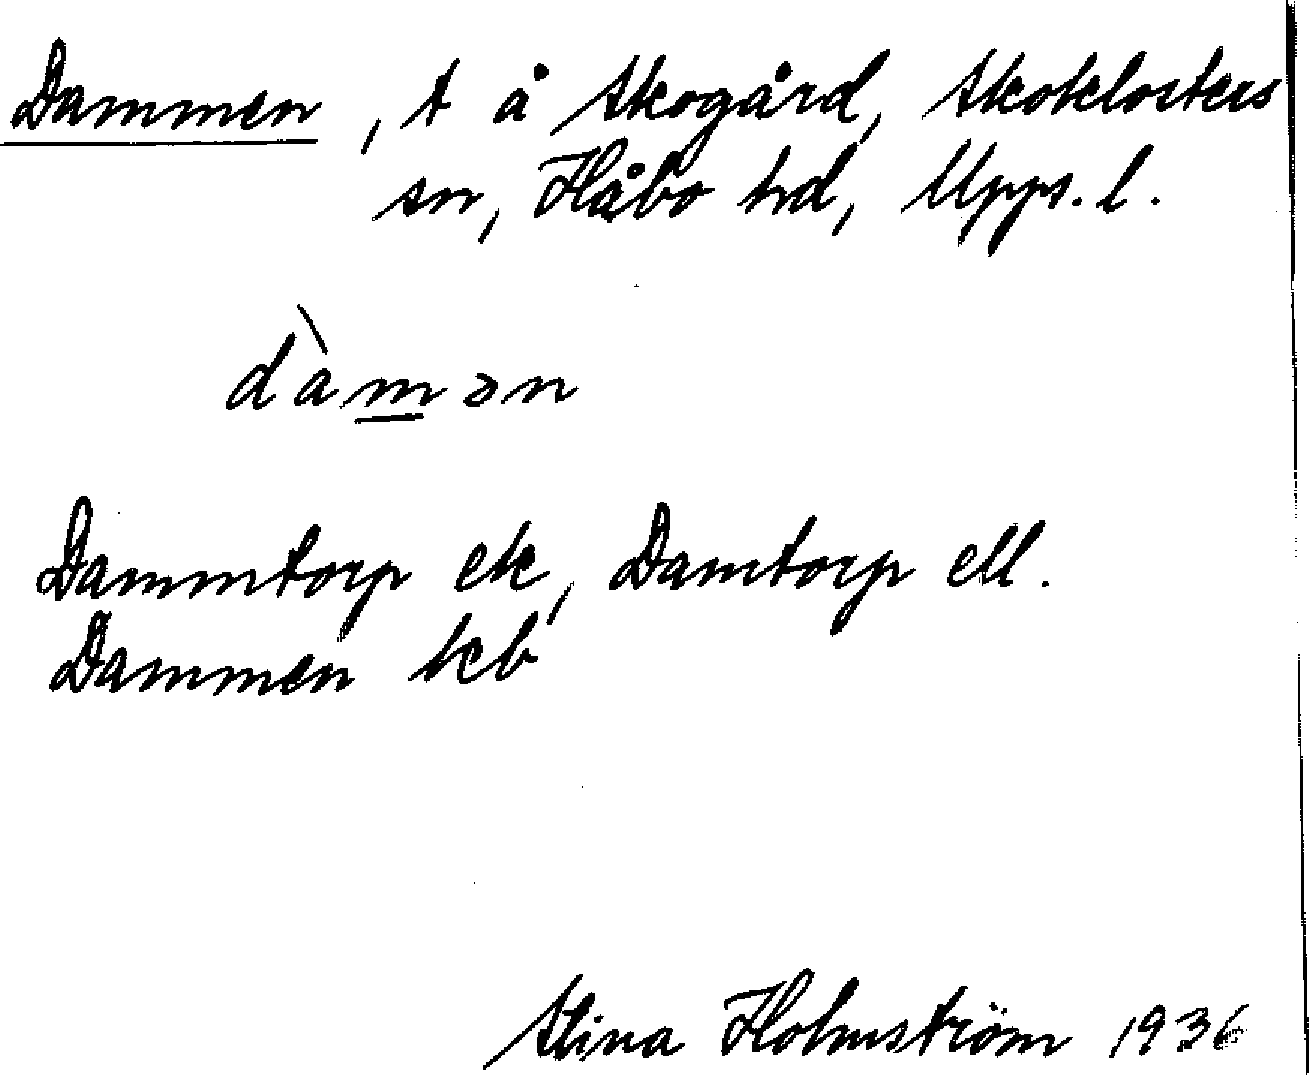 Dammen, t å Skogård, Skoklosters
sn, Håbo hd, Upps. l.
dàmən
Dammtorp ek, Damtorp ell.
Dammen kb
Stina Holmström 1936